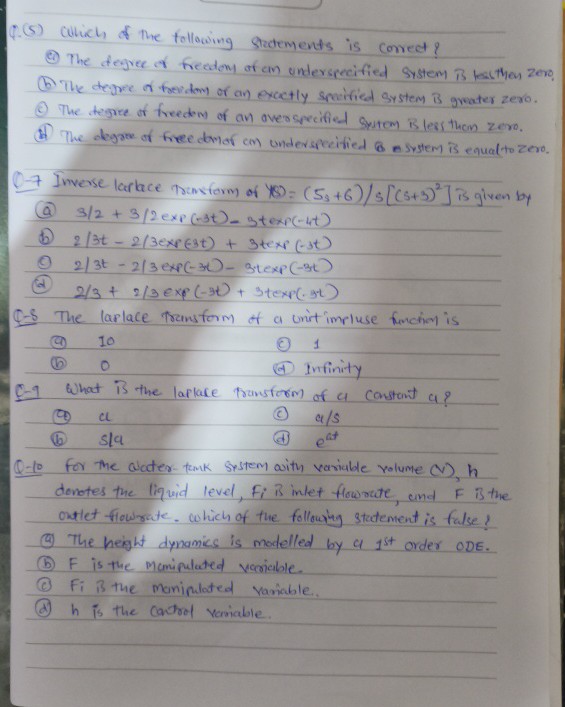 Q.(5) Which of the following statements is correct?
(a) The degree of freedom of an underspecified system is less then zero.
(b) The degree of freedom of an exactly specified system is greater zero.
(c) The degree of freedom of an overspecified system is less than zero.
(d) The degree of freedom of an underspecified system is equal to zero.
Q-7 Inverse laplace transform of Y(s) = (5s+6)/s[(s+3)²] is given by
(a) 3/2 + 3/2 exp(-3t) - 3texp(-4t)
(b) 2/3t - 2/3exp(3t) + 3texp(-3t)
(c) 2/3t - 2/3 exp(-3t) - 3texp(-3t)
(d) 2/3 + 2/3 exp(-3t) + 3texp(-3t)
Q-8 The laplace transform of a unit impluse function is
(a) 10 (c) 1
(b) 0 (d) Infinity
Q-9 What is the laplace transform of a constant a?
(a) a (c) a/s
(b) s/a (d) eat
Q-10 for the water-tank system with variable volume (V), h
denotes the liquid level, Fi is inlet flowrate, and F is the
outlet flowrate. which of the following statement is false?
(a) The height dynamics is modelled by a 1st order ODE.
(b) F is the manipulated variable.
(c) Fi is the manipulated variable.
(d) h is the control variable.